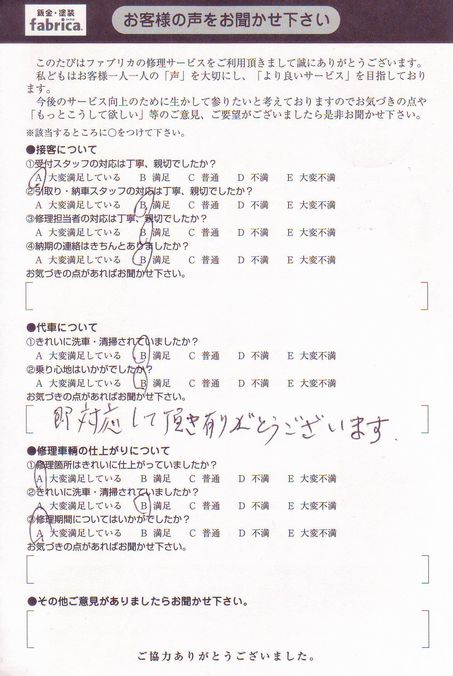 鈑金・塗装
fabrica.
お客様の声をお聞かせ下さい
このたびはファブリカの修理サービスをご利用頂きまして誠にありがとうございます。
私どもはお客様一人一人の「声」を大切にし、「より良いサービス」を目指しており
ます。
今後のサービス向上のために生かして参りたいと考えておりますのでお気づきの点や
「もっとこうして欲しい」等のご意見、ご要望がございましたら是非お聞かせ下さい。
※該当するところに○をつけて下さい。
●接客について
①受付スタッフの対応は丁寧、親切でしたか？
A 大変満足している B 満足 C 普通 D 不満 E 大変不満
②引取り・納車スタッフの対応は丁寧、親切でしたか？
A 大変満足している B 満足 C 普通 D 不満 E 大変不満
③修理担当者の対応は丁寧、親切でしたか？
A 大変満足している B 満足 C 普通 D 不満 E 大変不満
④納期の連絡はきちんとありましたか？
A 大変満足している B 満足 C 普通 D 不満 E 大変不満
お気づきの点があればお聞かせ下さい。
●代車について
①きれいに洗車・清掃されていましたか？
A 大変満足している B 満足 C 普通 D 不満 E 大変不満
②乗り心地はいかがでしたか？
A 大変満足している B 満足 C 普通 D 不満 E 大変不満
お気づきの点があればお聞かせ下さい。
即対応して頂き有りがとうございます.
●修理車輌の仕上がりについて
①修理箇所はきれいに仕上がっていましたか？
A 大変満足している B 満足 C 普通 D 不満 E 大変不満
②きれいに洗車・清掃されていましたか？
A 大変満足している B 満足 C 普通 D 不満 E 大変不満
③修理期間についてはいかがでしたか？
A 大変満足している B 満足 C 普通 D 不満 E 大変不満
お気づきの点があればお聞かせ下さい。
●その他ご意見がありましたらお聞かせ下さい。
ご協力ありがとうございました。